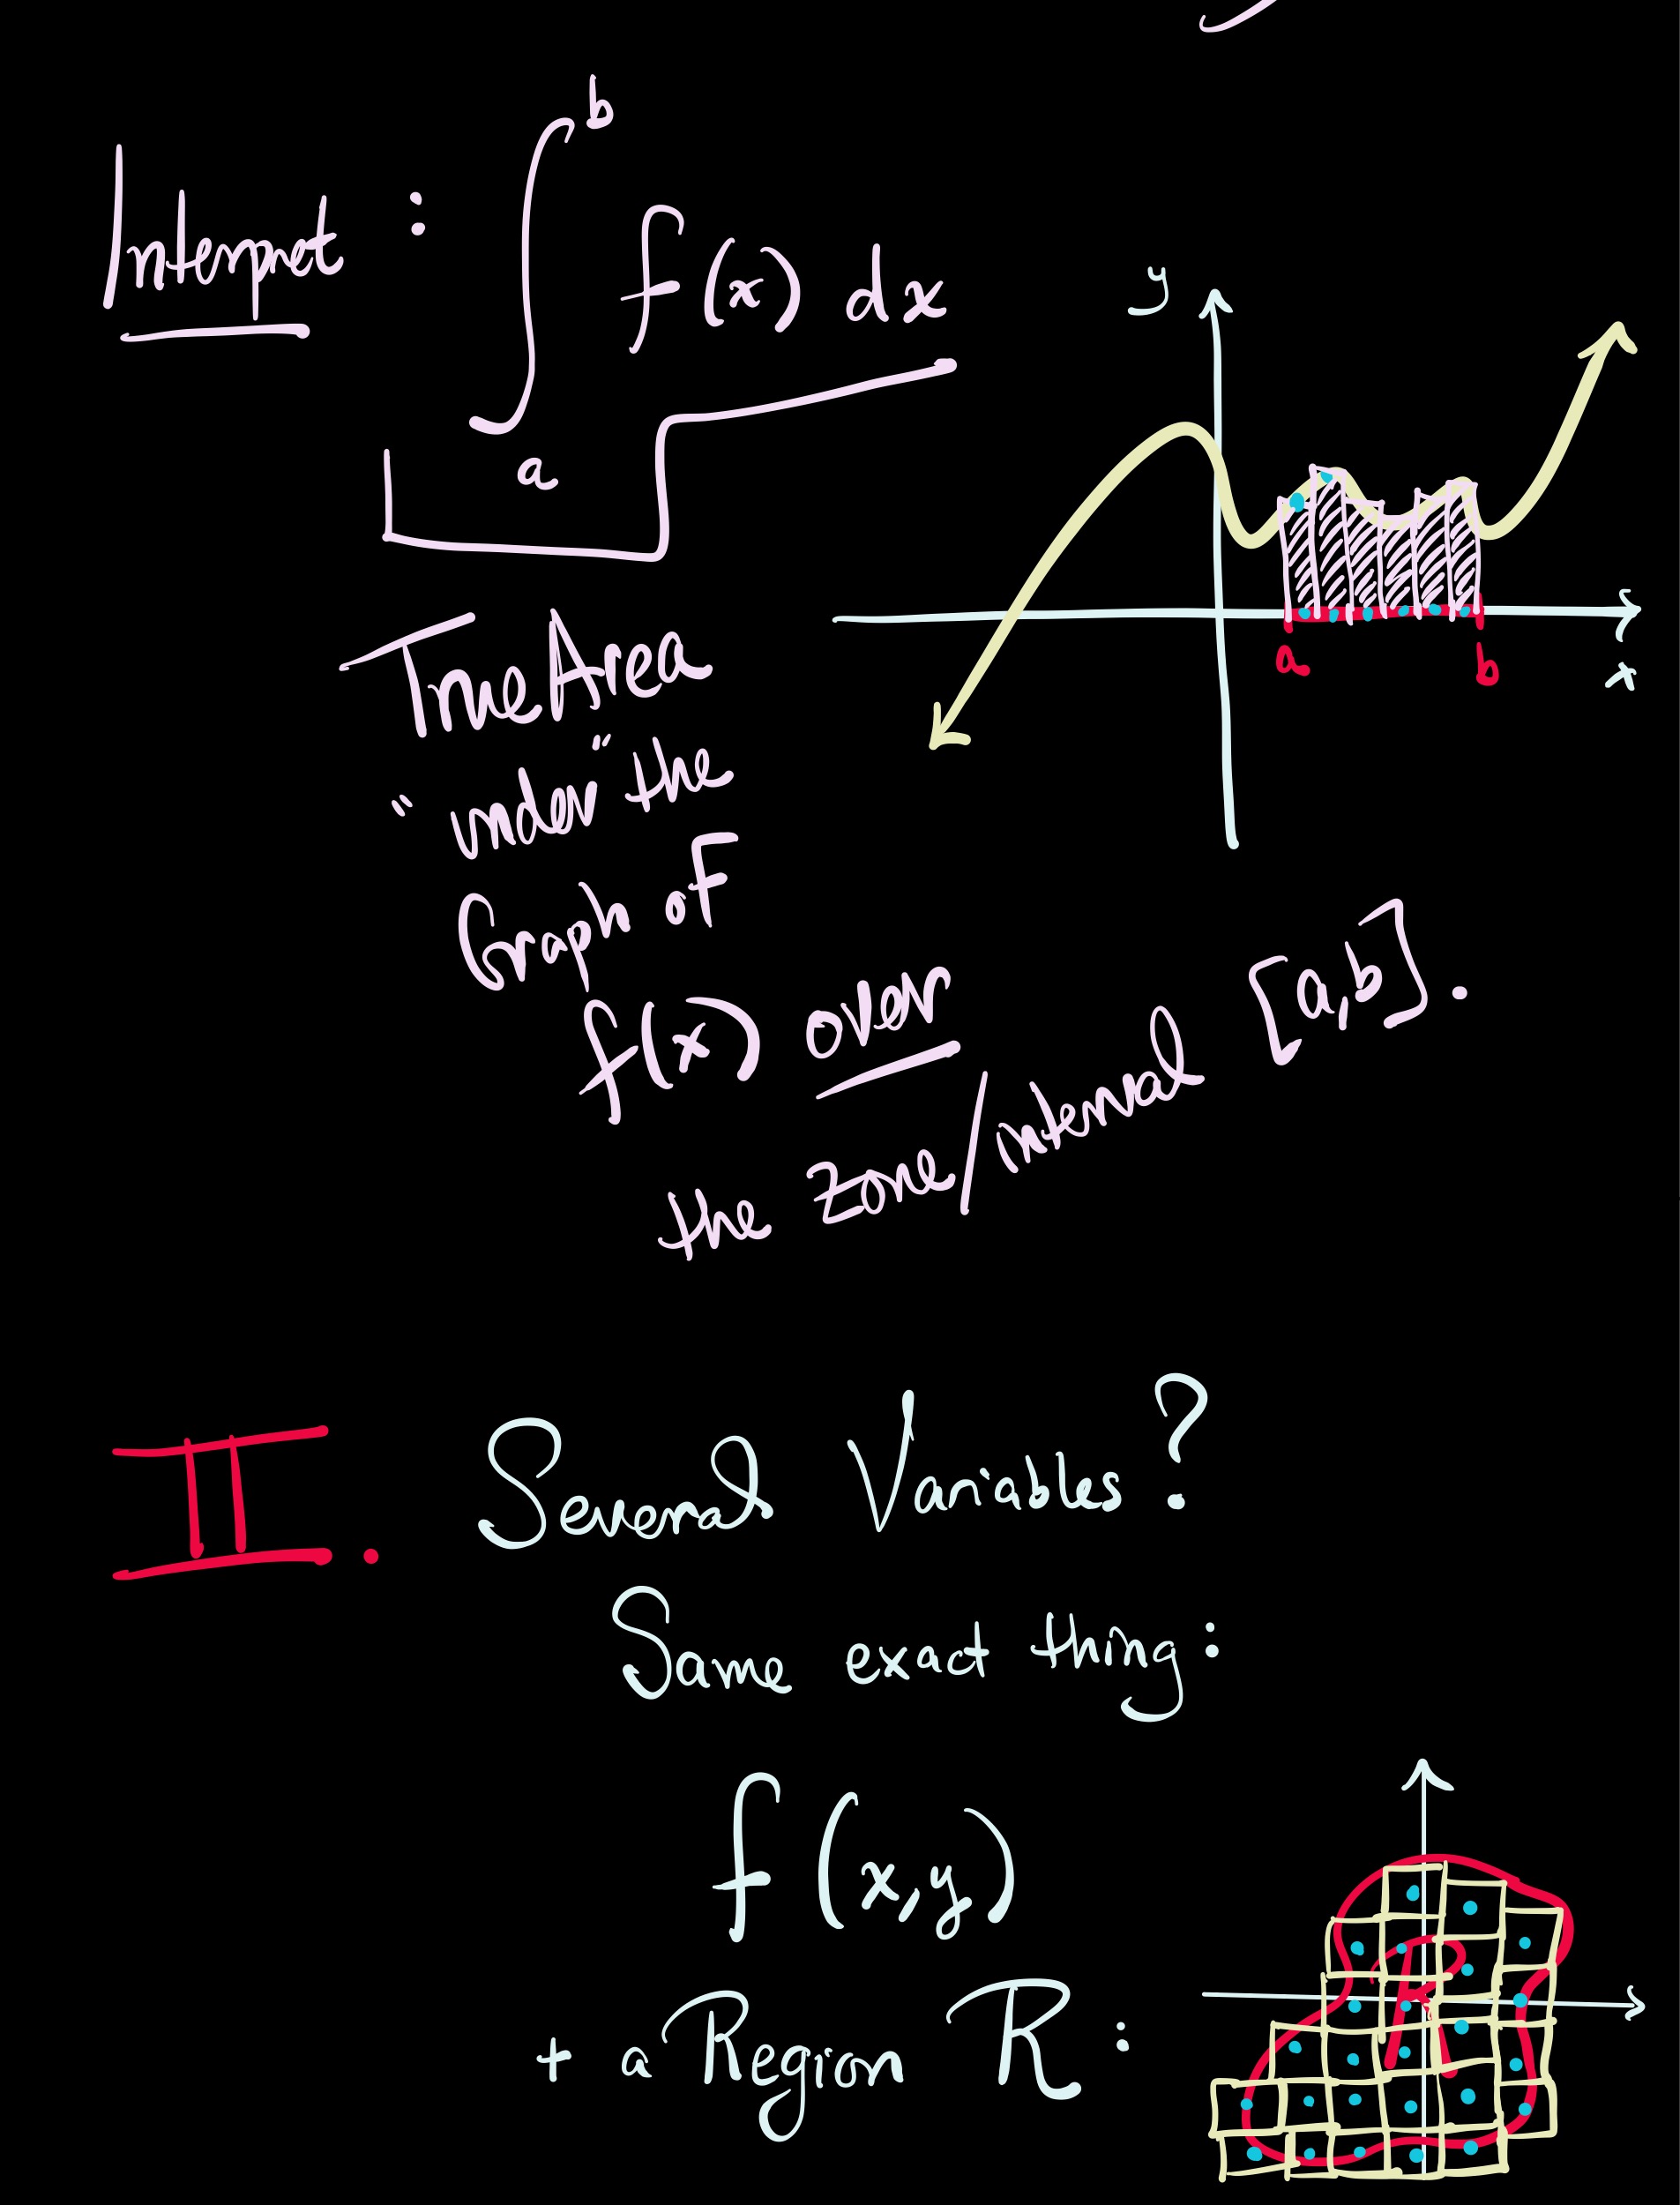 Interpret : ∫_a^b f(x) dx
y
a b x
True Area
"under" the
Graph of
f(x) over
the zone/interval [a,b].
II. Several Variables?
Same exact thing:
f(x,y)
+ a Region R:
R